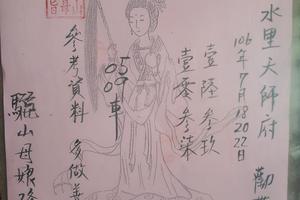 水里天師府 勸
106年7月18 20 22日
壹陸參玖
壹零參柒
05
09車
參考資料 多做善
驪山母娘